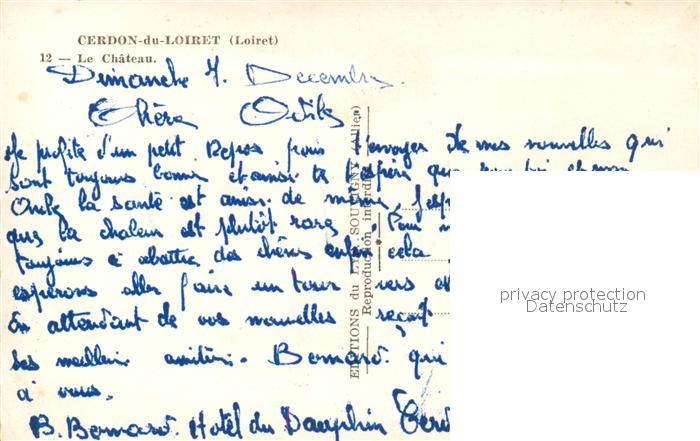 CERDON-du-LOIRET (Loiret)
12 — Le Château.
Dimanche 7. Decembre.
Chère Odile
Je profite d'un petit Repos pour t'envoyer de mes nouvelles qui
sont toujours bonne et ainsi que
Oncle la santé est ainsi de même, j'esp
que la chaleur est plutôt rare. Pour
toujours à abattre des chênes enfin cela
esperons aller faire un tour vers
En attendant de vos nouvelles reçoit
ses meilleur amitiés. Bernard qui
à vous.
B. Bernard. Hotel du Dauphin Cerd
EDITIONS du LYS, SOUVIGNY (Allier)
Reproduction interdite
privacy protection
Datenschutz